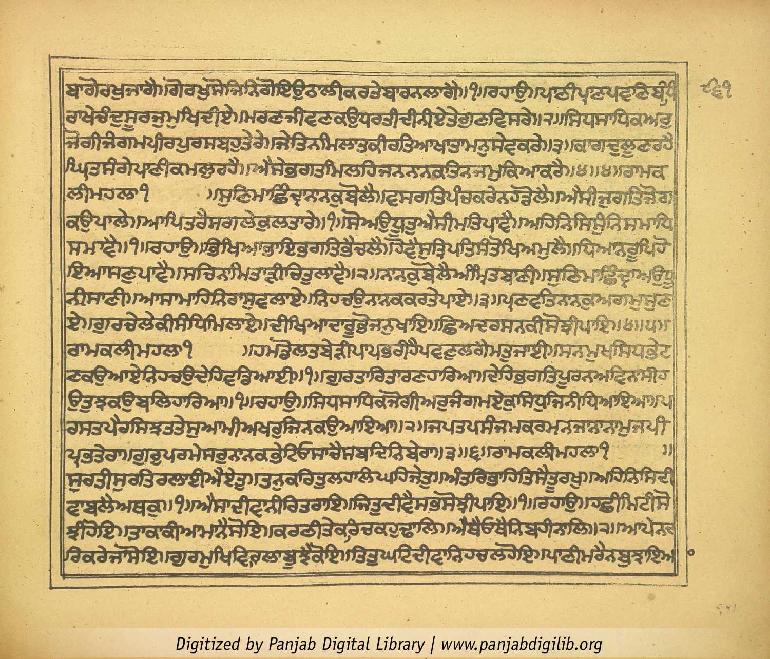 ਬਾਗੋਰਖੁਜਾਗੈ॥ਗੋਰਖੁਸੋਜਿਨਿਗੋਇਉਠਾਲੀਕਰਤੇਬਾਰਨਲਾਗੈ॥੧॥ਰਹਾਉ॥ਪਾਣੀਪ੍ਰਾਣਪਵਣਿਬੰਧਿ
ਰਾਖੇਚੰਦੁਸੂਰਜੁਮੁਖਿਦੀਏ॥ਮਰਣਜੀਵਣਕਉਧਰਤੀਦੀਨੀਏਤੇਗੁਣਵਿਸਰੇ॥੨॥ਸਿਧਸਾਧਿਕਅਰੁ
ਜੋਗੀਜੰਗਮਪੀਰਪੁਰਸਬਹੁਤੇਰੇ॥ਜੇਤਿਨਮਿਲਾਤਕੀਰਤਿਆਖਾਤਾਮਨੁਸੇਵਕਰੇ॥੩॥ਕਾਗਦੁਲੂਣੁਰਹੈ
ਘ੍ਰਿਤਸੰਗੇਪਾਣੀਕਮਲੁਰਹੈ॥ਐਸੇਭਗਤਮਿਲਹਿਜਨਨਾਨਕਤਿਨਜਮੁਕਿਆਕਰੈ॥੪॥੪॥ਰਾਮਕ
ਲੀਮਹਲਾ੧ ॥ਸੁਣਿਮਾਛਿੰਦ੍ਰਾਨਾਨਕੁਬੋਲੈ॥ਵਸਗਤਿਪੰਚਕਰੇਨਹਡੋਲੈ॥ਐਸੀਜੁਗਤਿਜੋਗ
ਕਉਪਾਲੇ॥ਆਪਿਤਰੈਸਗਲੇਕੁਲਤਾਰੇ॥੧॥ਸੋਅਉਧੂਤੁਐਸੀਮਤਿਪਾਵੈ॥ਅਹਿਨਿਸਿਸੁੰਨਿਸਮਾਧਿ
ਸਮਾਵੈ॥੧॥ਰਹਾਉ॥ਭਿਖਿਆਭਾਇਭਗਤਿਭੈਚਲੈ॥ਹੋਵੈਸੁਤ੍ਰਿਪਤਿਸੰਤੋਖਿਅਮੁਲੈ॥ਧਿਆਨਰੂਪਿਹੋ
ਇਆਸਣੁਪਾਵੈ॥ਸਚਿਨਾਮਿਤਾੜੀਚਿਤੁਲਾਵੈ॥੨॥ਨਾਨਕੁਬੋਲੈਅੰਮ੍ਰਿਤਬਾਣੀ॥ਸੁਣਿਮਾਛਿੰਦ੍ਰਾਅਉਧੂ
ਨੀਸਾਣੀ॥ਆਸਾਮਾਹਿਨਿਰਾਸੁਵਲਾਏ॥ਨਿਹਚਉਨਾਨਕਕਰਤੇਪਾਏ॥੩॥ਪ੍ਰਣਵਤਿਨਾਨਕੁਅਗਮੁਸੁਣਾ
ਏ॥ਗੁਰਚੇਲੇਕੀਸੰਧਿਮਿਲਾਏ॥ਦੀਖਿਆਦਾਰੂਭੋਜਨੁਖਾਇ॥ਛਿਅਦਰਸਨਕੀਸੋਝੀਪਾਇ॥੪॥੫॥
ਰਾਮਕਲੀਮਹਲਾ੧ ॥ਹਮਡੋਲਤਬੇੜੀਪਾਪਭਰੀਹੈਪਵਣੁਲਗੈਮਤੁਜਾਈ॥ਸਨਮੁਖਸਿਧਭੇਟ
ਣਕਉਆਏਨਿਹਚਉਦੇਹਿਵਡਿਆਈ॥੧॥ਗੁਰਤਾਰਿਤਾਰਣਹਾਰਿਆ॥ਦੇਹਿਭਗਤਿਪੂਰਨਅਵਿਨਾਸੀਹ
ਉਤੁਝਕਉਬਲਿਹਾਰਿਆ॥੧॥ਰਹਾਉ॥ਸਿਧਸਾਧਿਕਜੋਗੀਅਰੁਜੰਗਮਏਕੁਸਿਧੁਜਿਨੀਧਿਆਇਆ॥ਪ
ਰਸਤਪੈਰਸਿਝਤਤੇਸੁਆਮੀਅਖਰੁਜਿਨਕਉਆਇਆ॥੨॥ਜਪਤਪਸੰਜਮਕਰਮਨਜਾਨਾਨਾਮੁਜਪੀ
ਪ੍ਰਭਤੇਰਾ॥ਗੁਰੁਪਰਮੇਸਰੁਨਾਨਕਭੇਟਿਓਸਾਚੈਸਬਦਿਨਿਬੇਰਾ॥੩॥੬॥ਰਾਮਕਲੀਮਹਲਾ੧ ॥
ਸੁਰਤੀਸੁਰਤਿਰਲਾਈਐਏਤੁ॥ਤਨੁਕਰਿਤੁਲਹਾਲੰਘਹਿਜੇਤੁ॥ਅੰਤਰਿਭਾਹਿਤਿਸੈਤੂਰਖੁ॥ਅਹਿਨਿਸਿਦੀ
ਵਾਬਲੈਅਥਕੁ॥੧॥ਐਸਾਦੀਵਾਨੀਰਿਤਰਾਇ॥ਜਿਤੁਦੀਵੈਸਭਸੋਝੀਪਾਇ॥੧॥ਰਹਾਉ॥ਹਛੀਮਿਟੀਸੋ
ਝੀਹੋਇ॥ਤਾਕਾਕੀਆਮਾਨੈਸੋਇ॥ਕਰਣੀਤੇਕਰਿਚਕਹੁਢਾਲਿ॥ਐਥੈਓਥੈਨਿਬਹੀਨਾਲਿ॥੨॥ਆਪੇਨਦ
ਰਿਕਰੇਜਾਸੋਇ॥ਗੁਰਮੁਖਿਵਿਰਲਾਬੂਝੈਕੋਇ॥ਤਿਤੁਘਟਿਦੀਵਾਨਿਹਚਲੁਹੋਇ॥ਪਾਣੀਮਰੈਨਬੁਝਾਇਆ
Digitized by Panjab Digital Library | www.panjabdigilib.org